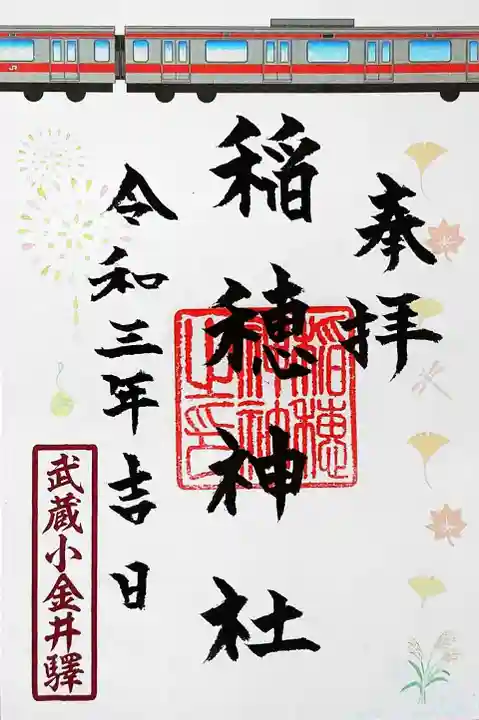 JR
奉拝
稲穂神社
稲穂神社之印
令和三年吉日
武蔵小金井驛